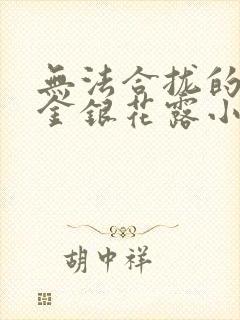 無法合拢的
金銀花露小
胡中祥